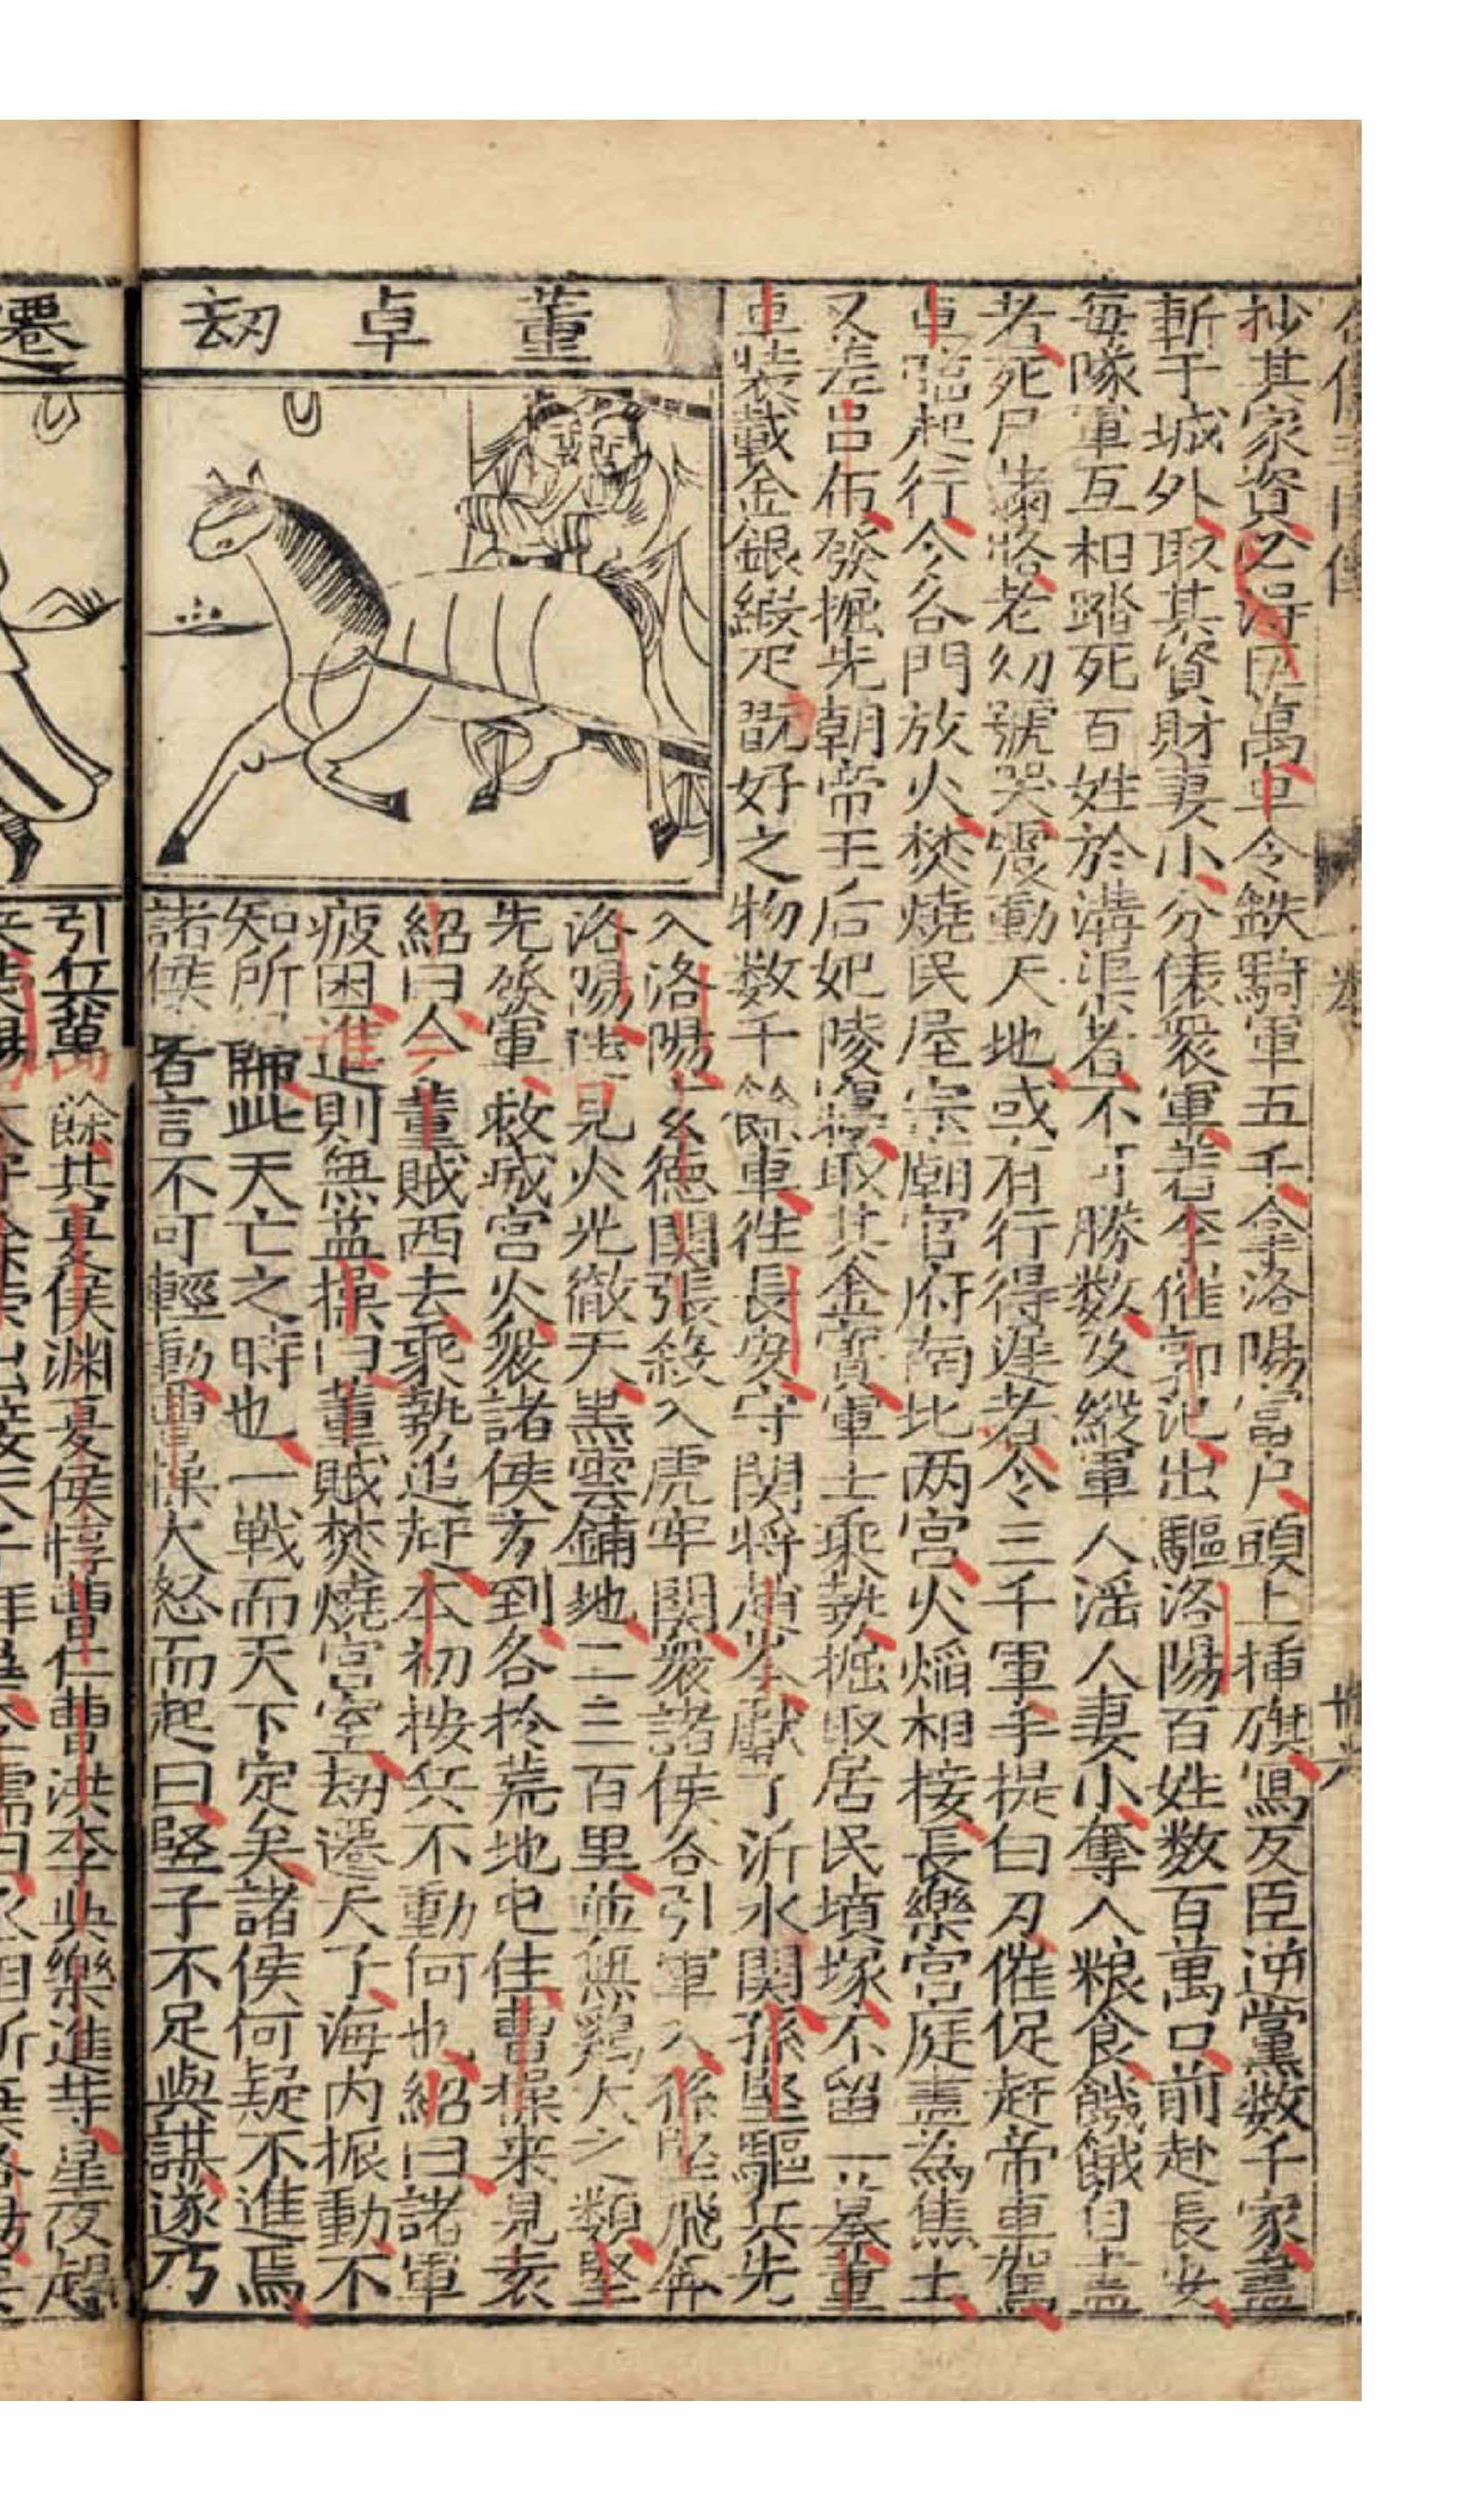 抄其家資必得巨萬卓令鉄騎軍五千拿洛陽富户頭上插旗寫反臣逆黨数千家盡
斬于城外取其資財妻小分俵衆軍若李催郭汜出驅洛陽百姓数百萬口前赴長安
每隊軍互相踏死百姓於溝渠者不可勝数及縱軍人滛人妻小奪人粮食餓餓自盡
者死尸满路老幼號哭震動天地或有行得遲者令三千軍手提白刃催促赶帝車駕
卓臨起行令各門放火焚燒民屋宗廟官府南北两宫火焰相接長樂宫庭盡為焦土
又差吕布發掘先朝帝王后妃陵寢取其金寳軍士乘势掘取居民墳塚不留一墓董
卓装載金銀緞疋翫好之物数千餘車徃長安守関将趙岑獻了沂水関孫堅驅兵先
董卓刼
入洛陽玄徳関張殺入虎牢関衆諸侯各引軍入孫堅飛奔
洛陽見火光徹天黒雲鋪地二三百里並無鷄犬之類堅
先發軍救滅宫火衆諸侯方到各於荒地屯住曹操来見袁
紹曰今董賊西去乘勢追赶本初按兵不動何也紹曰諸軍
疲困進則無益操曰董賊焚燒宫室刼遷天了海内振動不
知所歸此天亡之時也一戰而天下定矣諸侯何疑不進焉
諸侯皆言不可輕動曹操大怒而起曰竪子不足與謀遂乃
遷
引兵萬餘共夏侯渊夏侯惇曹仁曹洪李典樂進等星夜趕